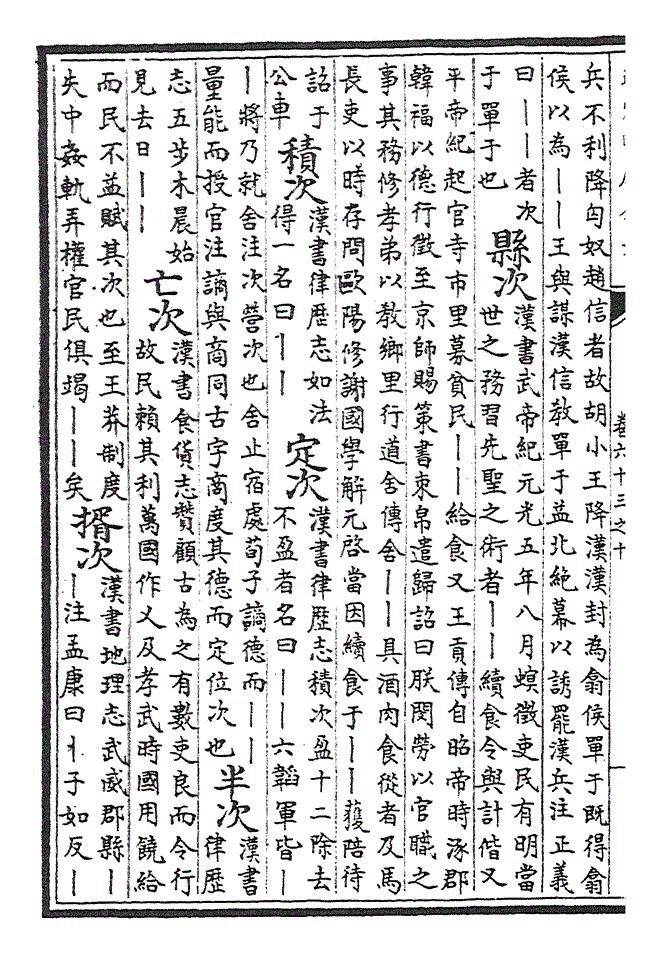 卷六十三之十
兵不利降匈奴趙信者故胡小王降漢漢封為翕侯單于既得翕
侯以為丨丨王與謀漢信教單于益北絕幕以誘罷漢兵注正義
曰丨丨者次
于單于也
縣次
漢書武帝紀元光五年八月螟徵吏民有明當
世之務習先聖之術者丨丨續食令與計偕又
平帝紀起官寺市里募貧民丨丨給食又王貢傳自昭帝時涿郡
韓福以德行徵至京師賜策書束帛遣歸詔曰朕閔勞以官職之
事其務修孝弟以教鄉里行道舍傳舍丨丨具酒肉食從者及馬
長吏以時存問歐陽修謝國學解元啓當因續食于丨丨獲陪待
詔于
公車
積次
漢書律歴志如法
得一名曰丨丨
定次
漢書律歴志積次盈十二除去
不盈者名曰丨丨六韜軍皆丨
丨將乃就舍注次營次也舍止宿處荀子謫德而丨丨
量能而授官注謫與商同古字商度其德而定位次也
半次
漢書
律歴
志五步木晨始
見去日丨丨
亡次
漢書食貨志贊顧古為之有數吏良而令行
故民賴其利萬國作乂及孝武時國用饒給
而民不益賦其次也至王莽制度
失中姦軌弄權官民俱竭丨丨矣
揟次
漢書地理志武威郡縣丨
丨注孟康曰丨子如反丨